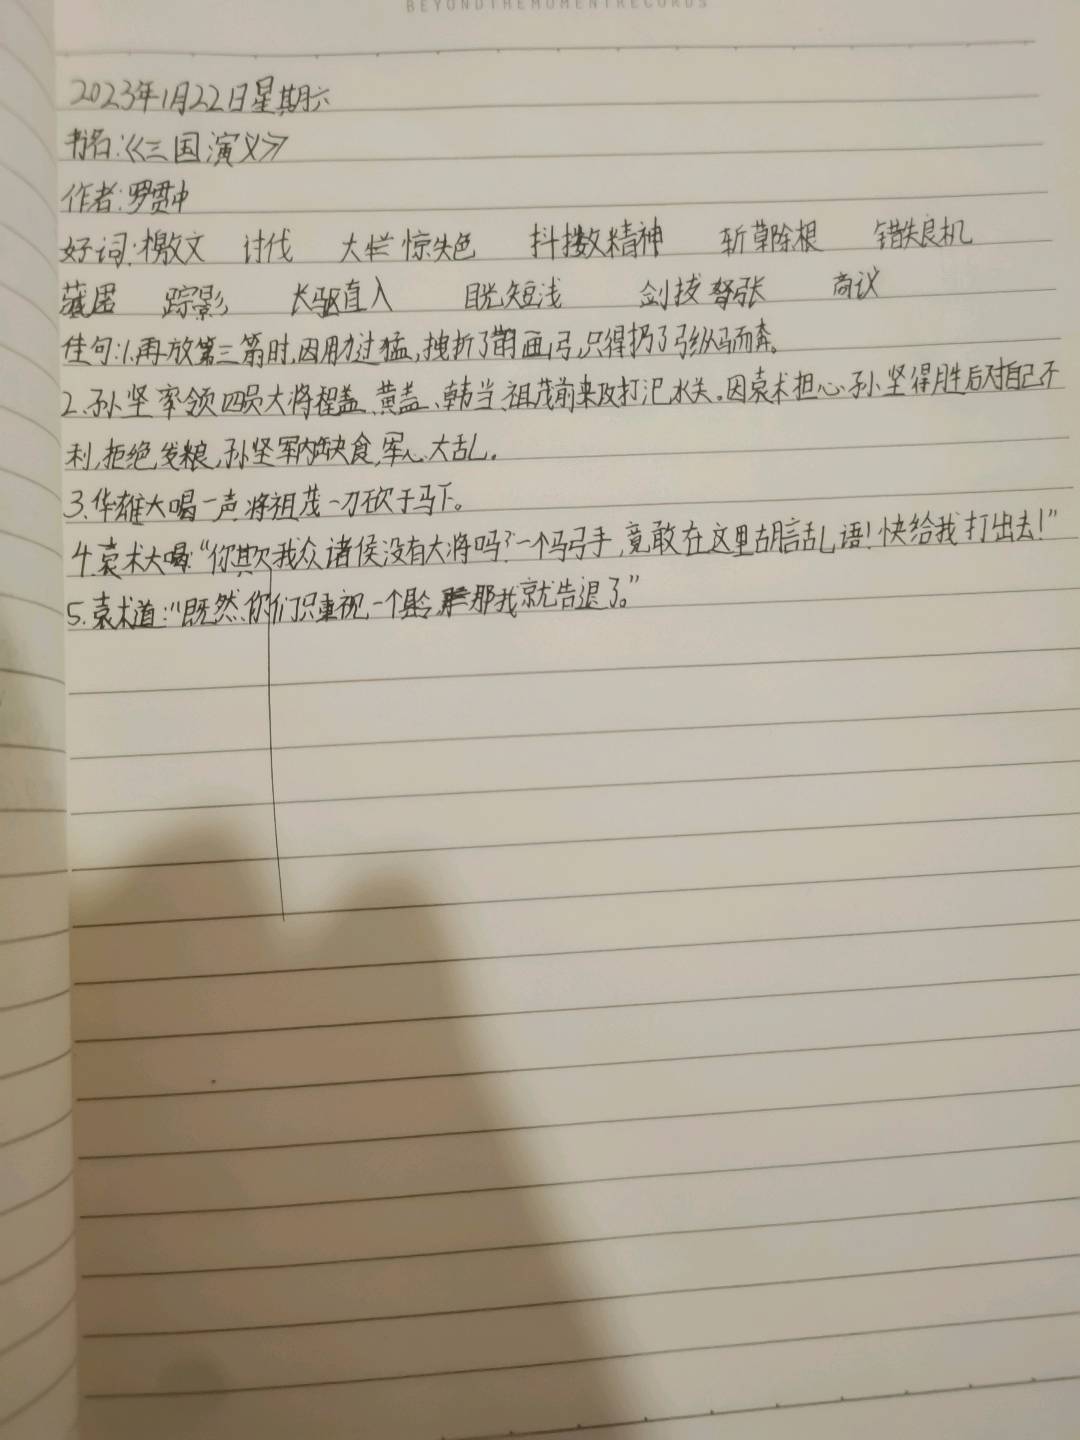 BEYONDTHEMOMENTRECORDS
2023年1月22日星期六
书名:《三国演义》
作者:罗贯中
好词:檄文 讨伐 大惊失色 抖擞精神 斩草除根 错失良机
踪影 长驱直入 目光短浅 剑拔弩张 商议
佳句:1.再放第三箭时,因用力过猛,拽折了鹊画弓,只得扔了弓纵马而奔。
2.孙坚率领四员大将程盖、黄盖、韩当、祖茂前来攻打汜水关。因袁术担心孙坚得胜后对自己不
利,拒绝发粮,孙坚军内缺食,军心大乱。
3.华雄大喝一声,将祖茂一刀砍于马下。
4.袁术大喝:“你欺我众诸侯没有大将吗?一个马弓手,竟敢在这里胡言乱语!快给我打出去!”
5.袁术道:“既然你们只重视一个县令,那我就告退了。”